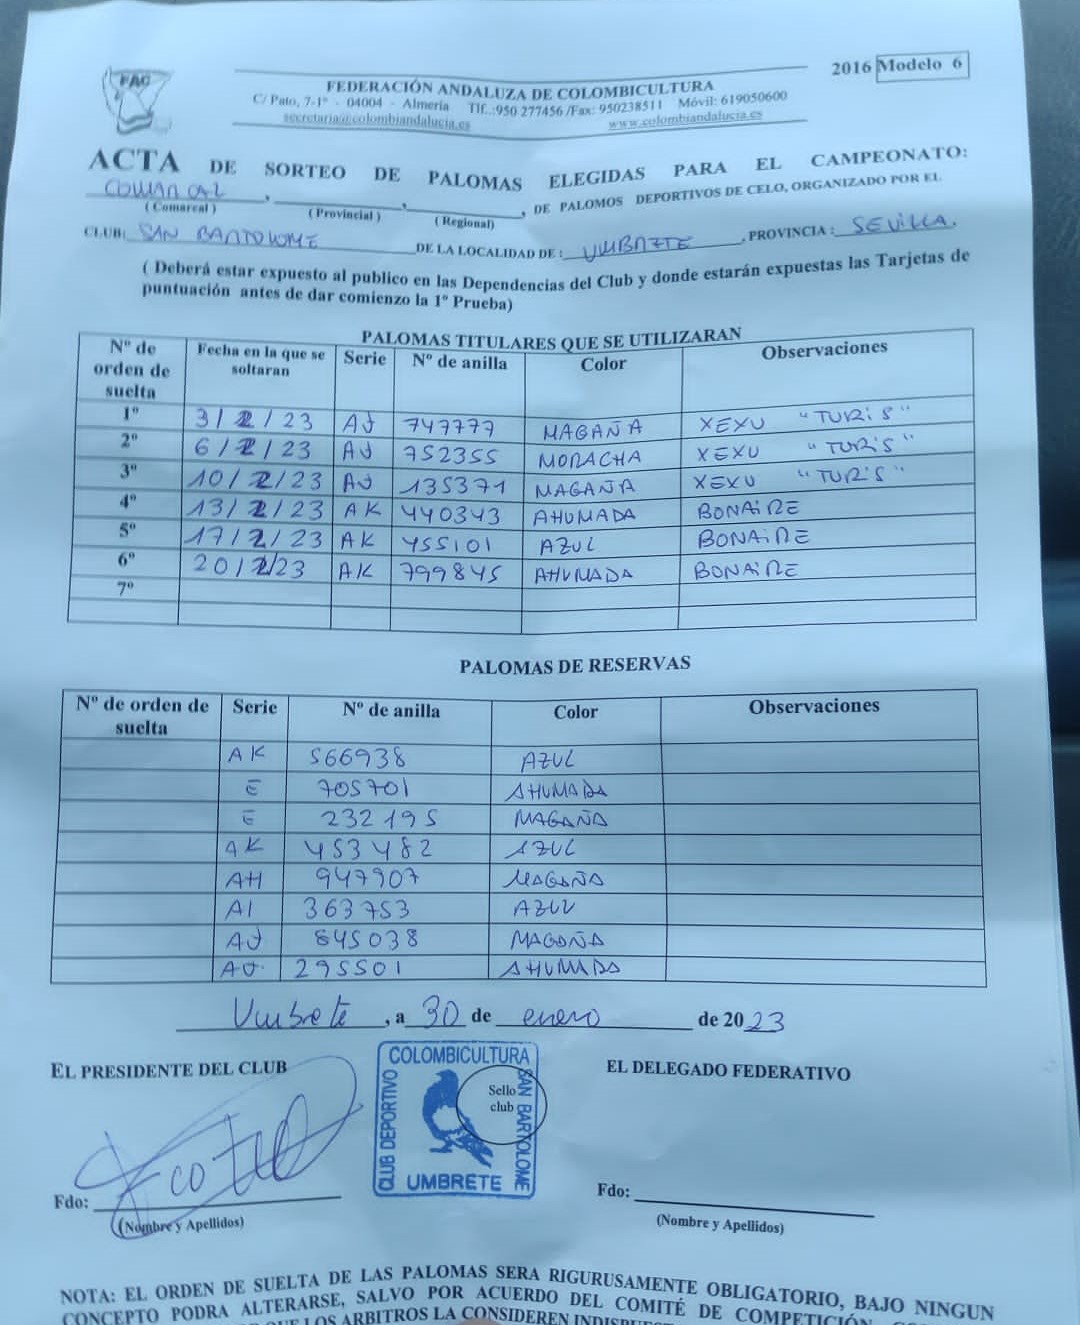 FAC
2016 Modelo 6
FEDERACIÓN ANDALUZA DE COLOMBICULTURA
C/ Pato, 7-1º - 04004 - Almería Tlf..:950 277456 /Fax: 950238511 Móvil: 619050600
secretaria@colombiandalucia.es www.colombiandalucia.es
ACTA DE SORTEO DE PALOMAS ELEGIDAS PARA EL CAMPEONATO:
COMARCAL, , , DE PALOMOS DEPORTIVOS DE CELO, ORGANIZADO POR EL
(Comarcal) (Provincial) (Regional)
CLUB: SAN BARTOLOME DE LA LOCALIDAD DE: UMBRETE, PROVINCIA: SEVILLA.
( Deberá estar expuesto al publico en las Dependencias del Club y donde estarán expuestas las Tarjetas de
puntuación antes de dar comienzo la 1º Prueba)
PALOMAS TITULARES QUE SE UTILIZARAN
Nº de orden de suelta Fecha en la que se soltaran Serie Nº de anilla Color Observaciones
1º 3/2/23 AJ 747777 MAGAÑA XEXU "TURIS"
2º 6/2/23 AJ 752355 MORACHA XEXU "TURIS"
3º 10/2/23 AJ 135371 MAGAÑA XEXU "TURIS"
4º 13/2/23 AK 440343 AHUMADA BONAIRE
5º 17/2/23 AK 455101 AZUL BONAIRE
6º 20/2/23 AK 799845 AHUMADA BONAIRE
7º
PALOMAS DE RESERVAS
Nº de orden de suelta Serie Nº de anilla Color Observaciones
AK 566938 AZUL
E 705701 AHUMADA
E 232195 MAGAÑA
AK 453482 AZUL
AH 947907 MAGAÑA
AI 363753 AZUL
AJ 845038 MAGAÑA
AJ. 295501 AHUMADA
Umbrete, a 30 de enero de 2023
EL PRESIDENTE DEL CLUB
EL DELEGADO FEDERATIVO
CLUB DEPORTIVO COLOMBICULTURA SAN BARTOLOME UMBRETE
Sello club
Fdo:
(Nombre y Apellidos)
Fdo:
(Nombre y Apellidos)
NOTA: EL ORDEN DE SUELTA DE LAS PALOMAS SERA RIGURUSAMENTE OBLIGATORIO, BAJO NINGUN
CONCEPTO PODRA ALTERARSE, SALVO POR ACUERDO DEL COMITÉ DE COMPETICIÓN
QUE LOS ARBITROS LA CONSIDEREN